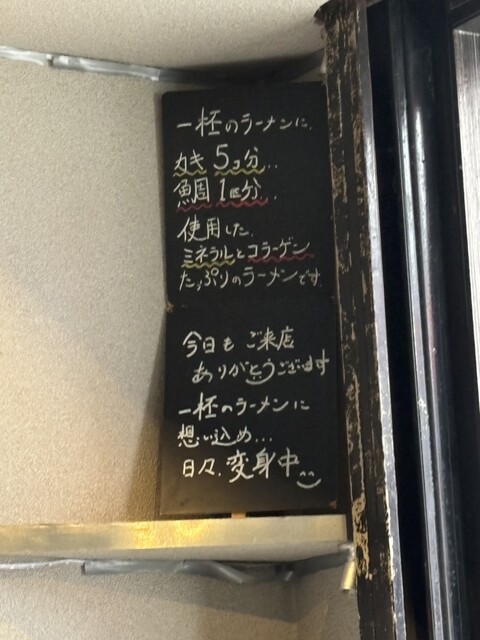 一杯のラーメンに、
カキ 5コ分、、
鯛 1匹分、
使用した、
ミネラルとコラーゲン
たっぷりのラーメンです。
今日も ご来店
ありがとうございます
一杯のラーメンに
想い込め…
日々、変身中